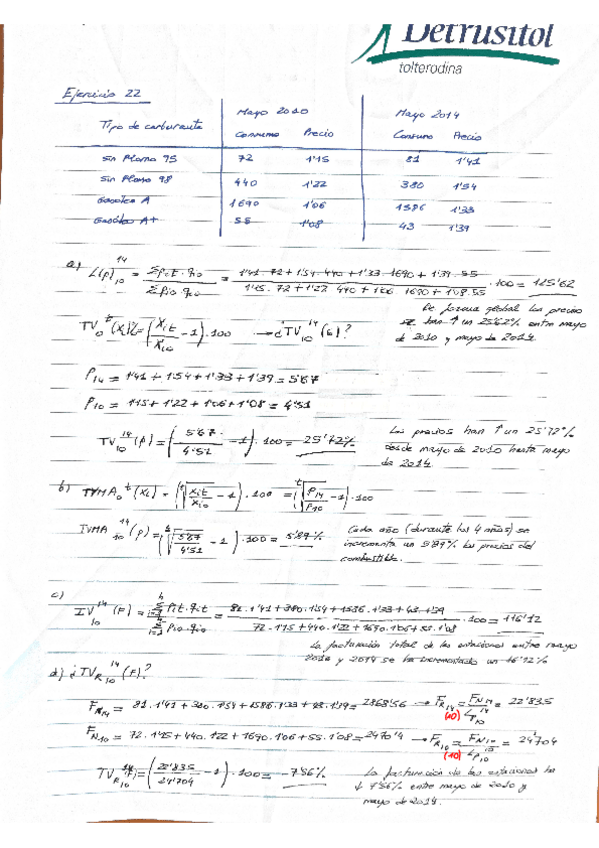 Detrusitol
tolterodina
Ejercicio 22
Mayo 2010 Mayo 2014
Tipo de carburante Consumo Precio Consumo Precio
Sin Plomo 95 72 1'15 81 1'41
Sin Plomo 98 440 1'22 380 1'54
Gasóleo A 1690 1'06 1586 1'33
Gasóleo A+ 55 1'08 43 1'39
a) L(p)₁₀¹⁴ = Σpit·qio / Σpio·qio = 1'41·72+1'54·440+1'33·1690+1'39·55 / 1'15·72+1'22·440+1'06·1690+1'08·55 ·100 = 125'62
De forma global los precios
se han ↑ un 25'62% entre mayo
de 2010 y mayo de 2014.
TV₀ᵗ(Xi)% = (Xit/Xi0 - 1)·100 → ¿TV₁₀¹⁴(L)?
P₁₄ = 1'41+1'54+1'33+1'39 = 5'67
P₁₀ = 1'15+1'22+1'06+1'08 = 4'51
TV₁₀¹⁴(P) = (5'67/4'51 - 1)·100 = 25'72%
Los precios han ↑ un 25'72%
desde mayo de 2010 hasta mayo
de 2014.
b) TVMA₀ᵗ(Xi) = (ᵗ√Xit/Xi0 - 1)·100 = (ᵗ√P14/P10 - 1)·100
TVMA₁₀¹⁴(P) = (⁴√5'67/4'51 - 1)·100 = 5'89%
Cada año (durante los 4 años) se
incrementa un 5'89% los precios del
combustible.
c) IV₁₀¹⁴(F) = Σpit·qit / Σpio·qio = 81·1'41+380·1'54+1586·1'33+43·1'39 / 72·1'15+440·1'22+1690·1'06+55·1'08 ·100 = 116'12
La facturación total de las estaciones entre mayo
2010 y 2014 se ha incrementado un 16'12%
d) ¿TV_R₁₀¹⁴(F)?
F_N14 = 81·1'41+380·1'54+1586·1'33+43·1'39 = 2868'56 → F_R14 (10) = F_N14 / L_p₁₀¹⁴ = 22'835
F_N10 = 72·1'15+440·1'22+1690·1'06+55·1'08 = 2470'4 → F_R10 (10) = F_N10 / L_p₁₀¹⁰ = 24'704
TV_R₁₀¹⁴(F) = (22'835/24'704 - 1)·100 = -7'56%
La facturación de las estaciones ha
↓ 7'56% entre mayo de 2010 y
mayo de 2014.